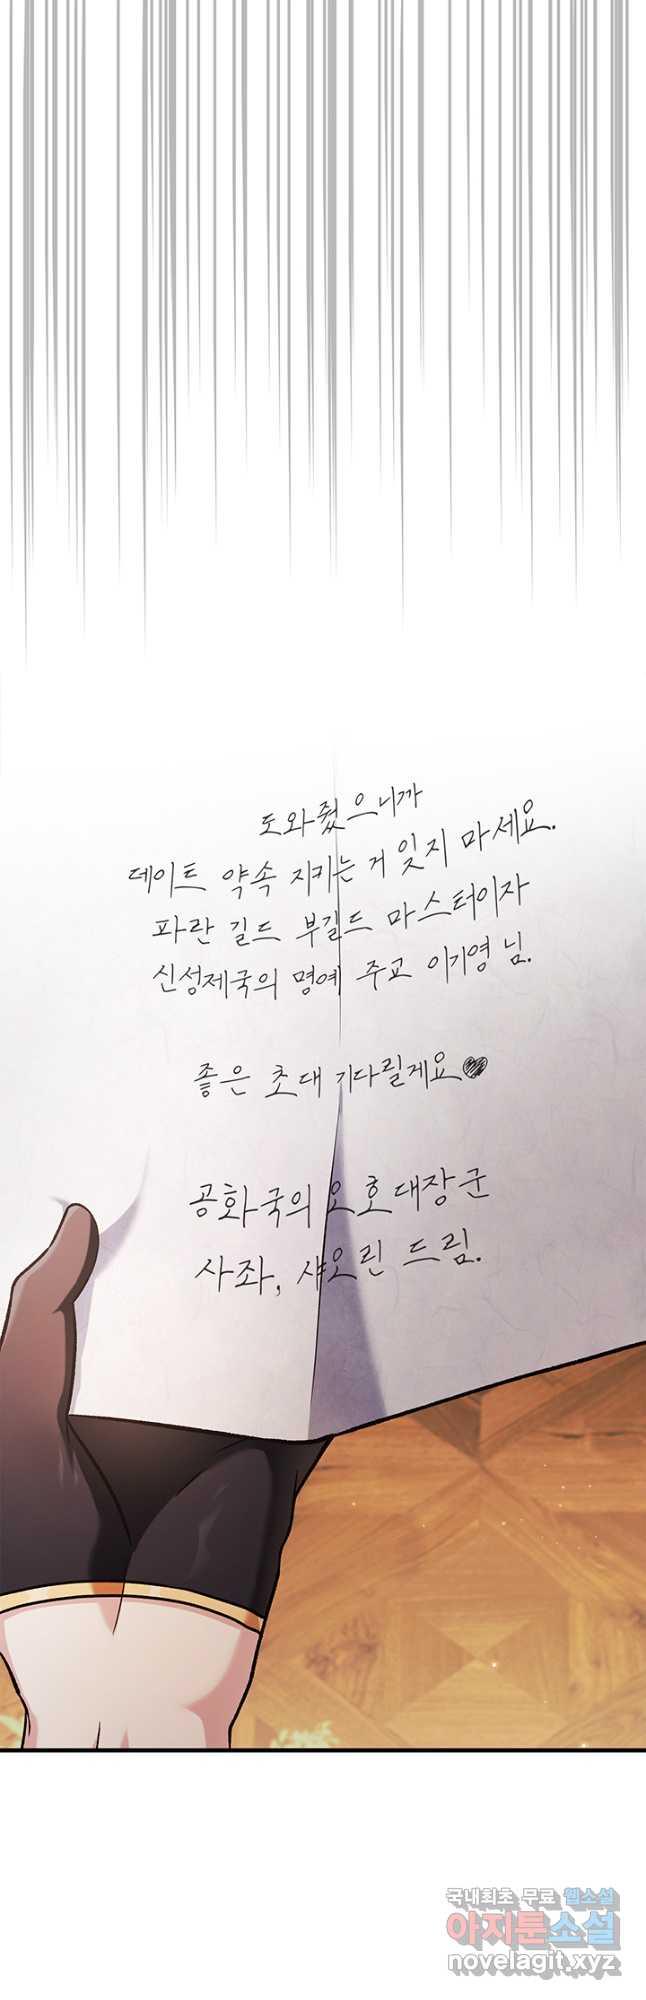 도와줬으니까
데이트 약속 지키는 거 잊지 마세요.
파란 길드 부길드 마스터이자
신성제국의 명예 주교 이기영 님.
좋은 초대 기다릴게요♥
공화국의 오호대장군
사좌, 샤오린 드림.
국내최초 무료 웹소설
아지툰소설
novelagit.xyz